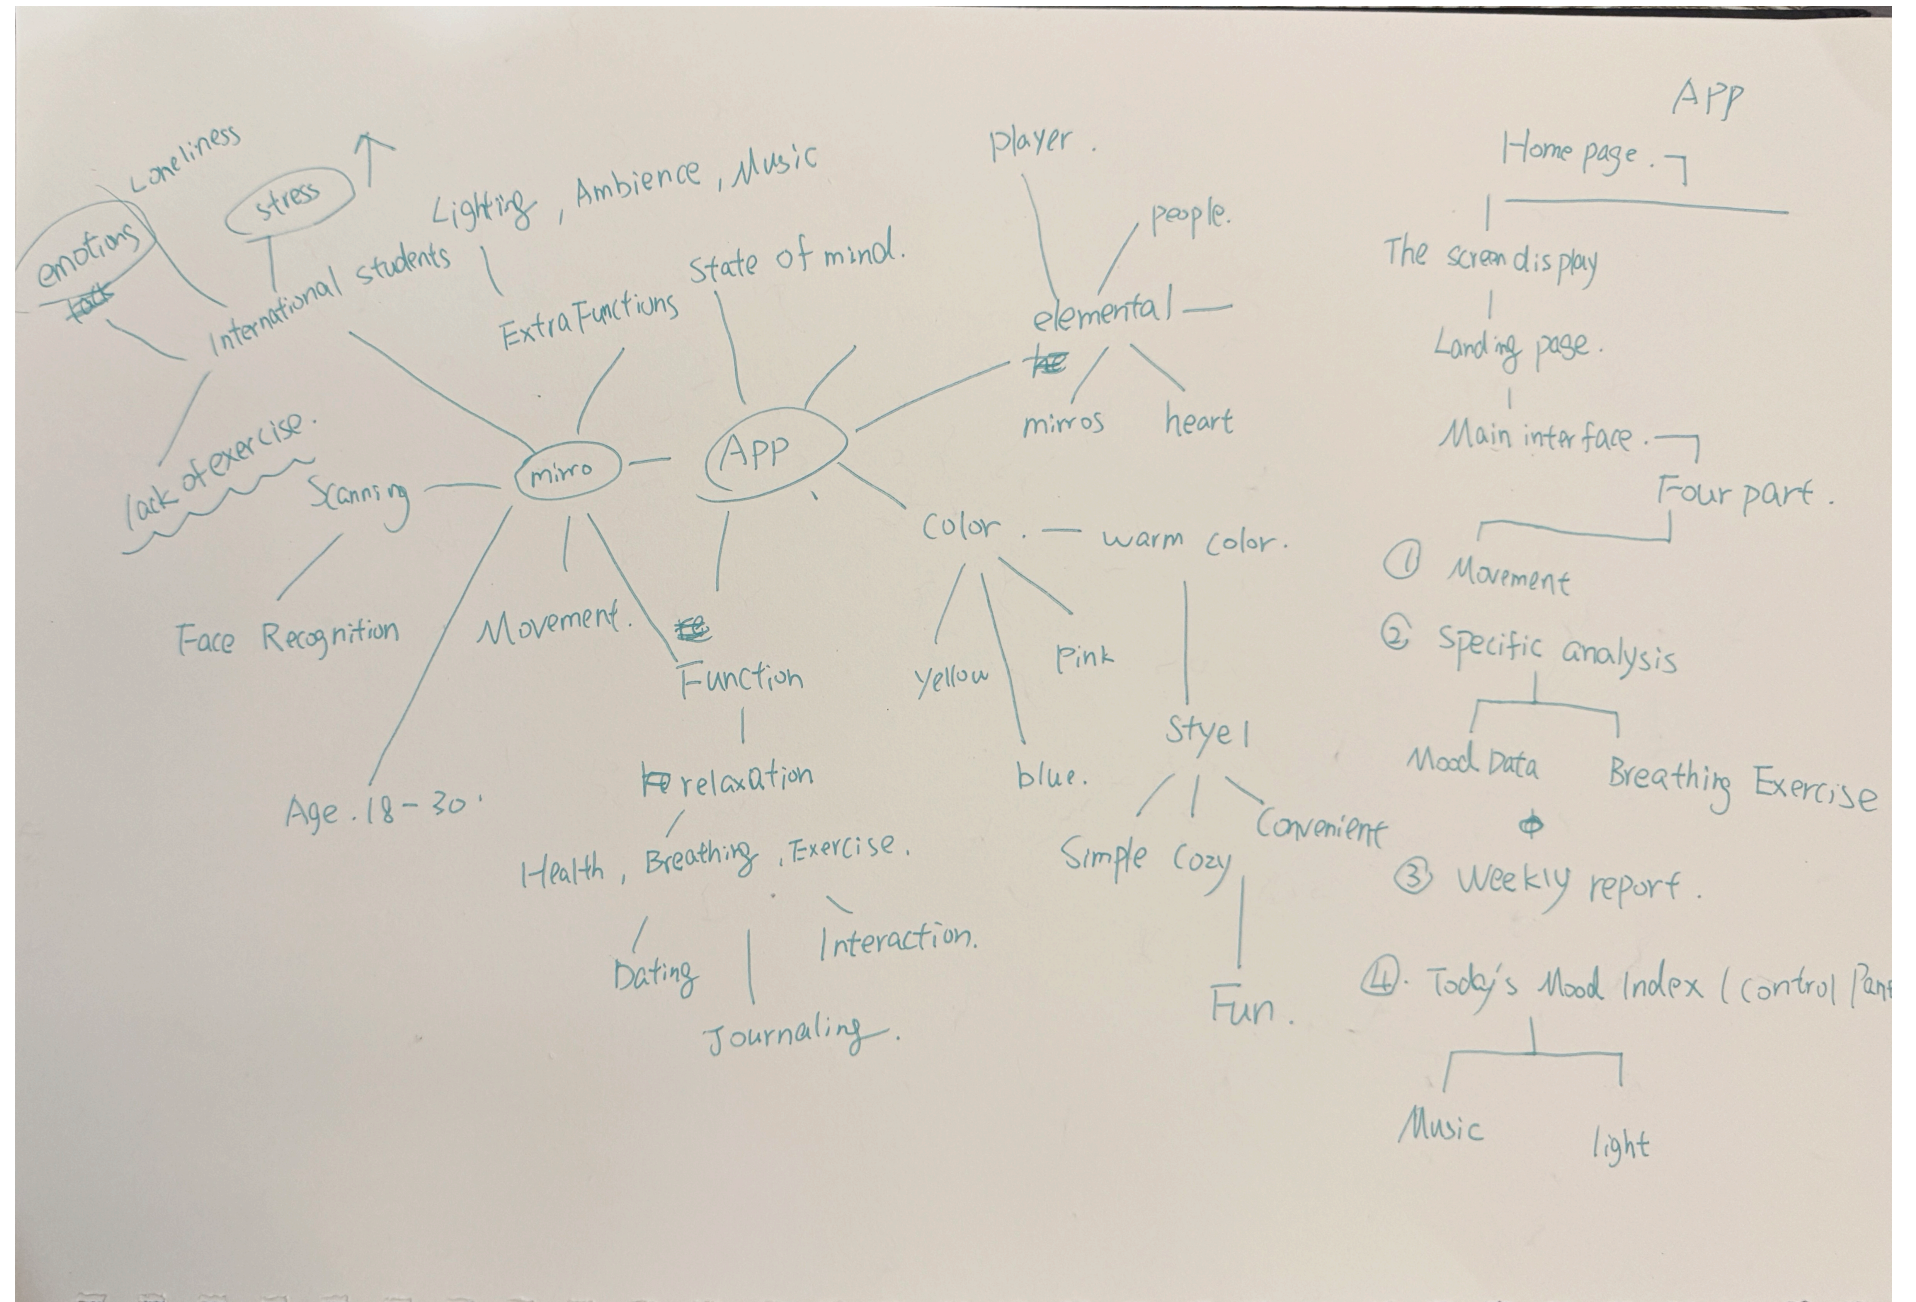 Loneliness
emotions
stress
International students
lack of exercise.
Lighting, Ambience, Music
Extra Functions
State of mind.
mirro
APP
Scanning
Face Recognition
Age. 18-30.
Movement.
Function
relaxation
Health, Breathing, Exercise.
Dating
Journaling.
Interaction.
player.
people.
elemental
mirros
heart
color. — warm color.
yellow
blue.
pink
Styel
Simple
Cozy
Convenient
Fun.
APP
Home page.
The screen display
Landing page.
Main interface.
Four part.
① Movement
② Specific analysis
Mood Data
Breathing Exercise
③ Weekly report.
④. Today's Mood Index (control
Music
light